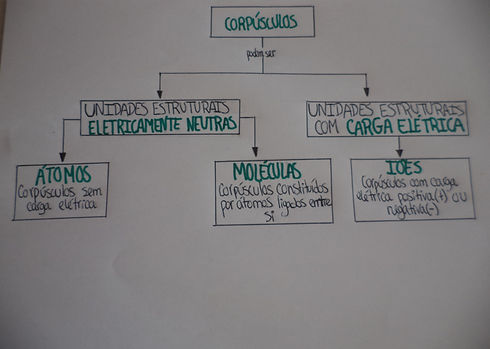 CORPÚSCULOS
podem ser
UNIDADES ESTRUTURAIS
ELETRICAMENTE NEUTRAS
UNIDADES ESTRUTURAIS
COM CARGA ELÉTRICA
ÁTOMOS
Corpúsculos sem
carga elétrica
MOLÉCULAS
Corpúsculos constituídos
por átomos ligados entre
si
IOES
Corpúsculos com carga
elétrica positiva(+) ou
negativa(-)